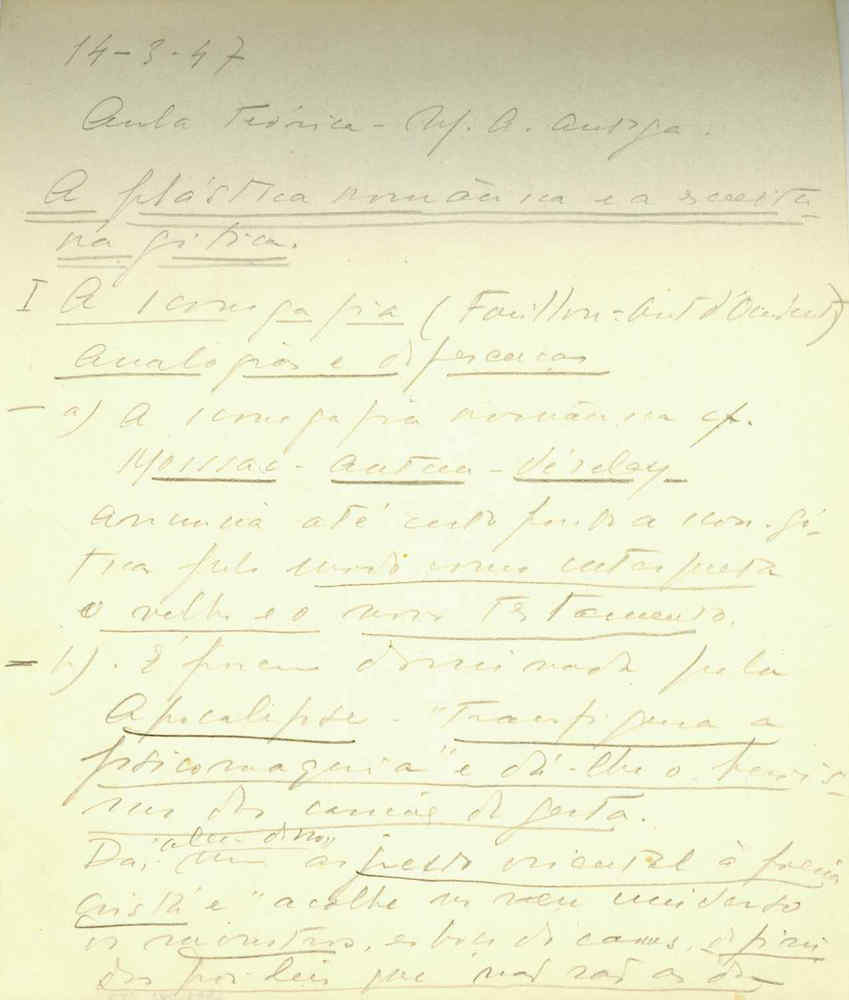 14-3-47
Aula Teórica - H. A. antiga.
A plástica românica e a
na gótica.
I A iconografia (Focillon - Art d'Occident)
Analogias e diferenças
- a) A iconografia românica cf.
Moissac - Autun - Vézelay
anuncia até certo ponto a icon. gó-
tica pelo modo como interpreta
o velho e o novo Testamento.
- b). É porem dominada pela
Apocalipse - "Transfigura a
psicomaquia" e dá-lhe o heroís-
mo das canções de gesta.
Daí, "além disso," um aspecto oriental à poesia
cristã e "acolhe no seu universo
os monstros, esboço de caos, defini-
dos por leis que não são as da